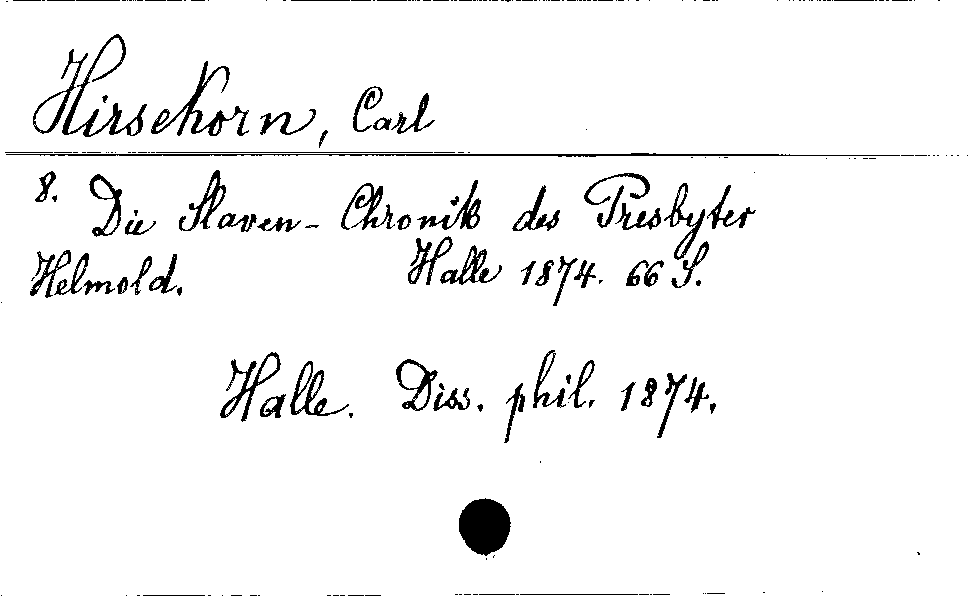 Hirsekorn, Carl
8. Die Slaven-Chronik des Presbyter
Helmold. Halle 1874. 66 S.
Halle. Diss. phil. 1874.